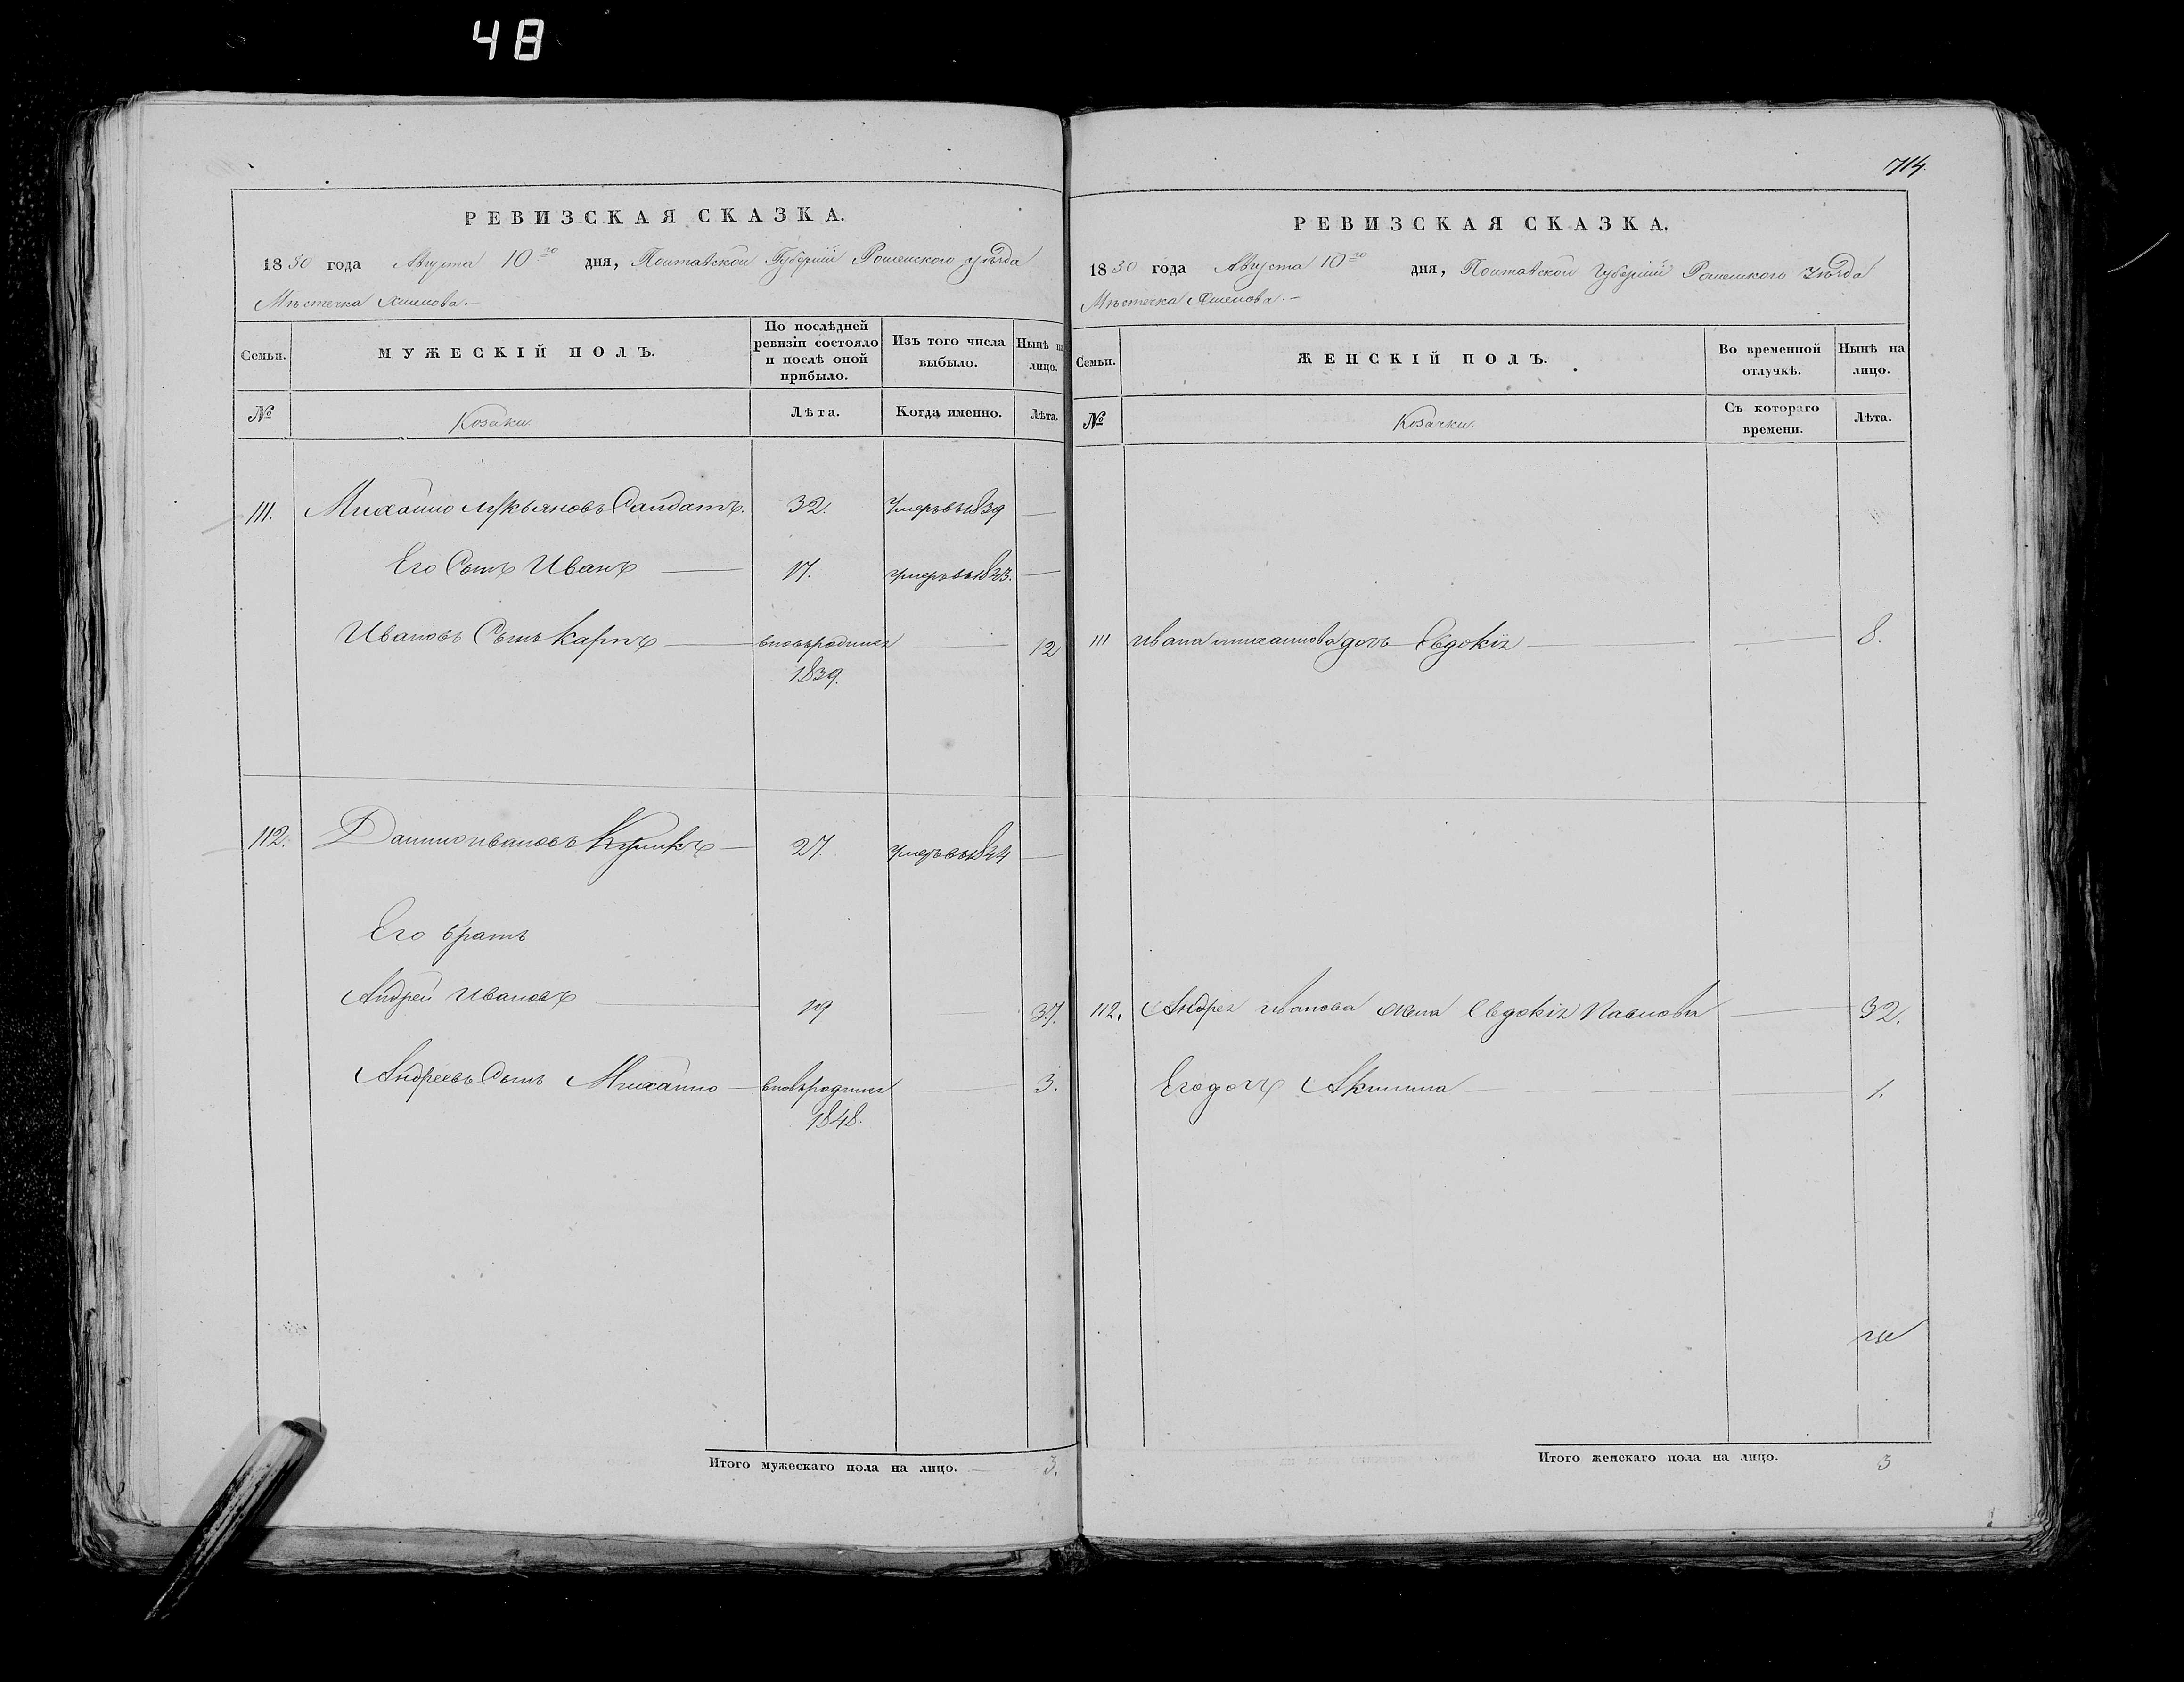 48
РЕВИЗСКАЯ СКАЗКА.
1850 года Августа 10го дня, Полтавской Губерніи Роменского уѣзда
Мѣстечка
Семьи.
МУЖЕСКІЙ ПОЛЪ.
По послѣдней ревизіи состояло и послѣ оной прибыло.
Изъ того числа выбыло.
Нынѣ на лицо.
№
Козаки
Лѣта.
Когда именно.
Лѣта.
111. Михайло Лукьяновъ Салдатъ. 32. Умеръ въ 1839 —
Его Сынъ Иванъ — 17. умеръ въ 1843. —
Ивановъ Сынъ Карпъ — вновьродился — 12
1839.
112. Данило ивановъ Куликъ — 27. Умеръ въ 1844 —
Его братъ
Андрей Ивановъ — 19 — 37.
Андреевъ Сынъ Михайло — вновьродился — 3.
1848.
Итого мужескаго пола на лицо. — 3.
714.
РЕВИЗСКАЯ СКАЗКА.
1850 года Августа 10го дня, Полтавской Губерніи Роменского Уѣзда
Мѣстечка
Семьи.
ЖЕНСКІЙ ПОЛЪ.
Во временной отлучкѣ.
Нынѣ на лицо.
№
Козачки.
Съ котораго времени.
Лѣта.
111 Ивана михайлова дочь Евдокія — — 8.
112. Андрея иванова жена Евдокія Павлова — 32.
Его дочь Акилина — — 1.
Итого женскаго пола на лицо. 3